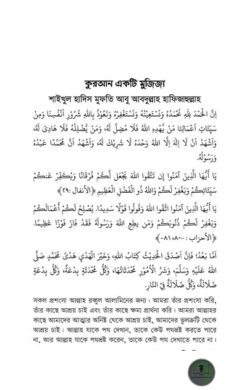 কুরআন একটি মুজিজা
শাইখুল হাদিস মুফতি আবু আবদুল্লাহ হাফিজাহুল্লাহ
إِنَّ الْحَمْدَ لِلَّهِ نَحْمَدُهُ وَنَسْتَعِينُهُ وَنَسْتَغْفِرُهُ وَنَعُوذُ بِاللَّهِ شُرُورِ أَنْفُسِنَا وَمِنْ
سَيِّئَاتِ أَعْمَالِنَا مَنْ يَهْدِهِ اللَّهُ فَلَا مُضِلَّ لَهُ، وَمَنْ يُضْلِلْهُ فَلَا هَادِيَ لَهُ،
وَأَشْهَدُ أَنْ لَا إِلَهَ إِلَّا اللَّهُ وَحْدَهُ لَا شَرِيكَ لَهُ، وَأَشْهَدُ أَنَّ مُحَمَّدًا عَبْدُهُ
وَرَسُولُهُ.
يَا أَيُّهَا الَّذِينَ آمَنُوا إِن تَتَّقُوا اللَّهَ يَجْعَل لَّكُمْ فُرْقَانًا وَيُكَفِّرْ عَنكُمْ
سَيِّئَاتِكُمْ وَيَغْفِرْ لَكُمْ وَاللَّهُ ذُو الْفَضْلِ الْعَظِيمِ (الأنفال :٢٩)
يَا أَيُّهَا الَّذِينَ آمَنُوا اتَّقُوا اللَّهَ وَقُولُوا قَوْلًا سَدِيدًا. يُصْلِحْ لَكُمْ أَعْمَالَكُمْ
وَيَغْفِرْ لَكُمْ ذُنُوبَكُمْ وَمَن يُطِعِ اللَّهَ وَرَسُولَهُ فَقَدْ فَازَ فَوْزًا عَظِيمًا.
(الأحزاب : ٨٠-٨١)
أَمَّا بَعْدُ؛ فَإِنَّ أَصْدَقَ الْحَدِيثِ كِتَابُ اللَّهِ، وَخَيْرَ الْهَدْيِ هَدْيُ مُحَمَّدٍ صَلَّى
اللَّهُ عَلَيْهِ وَسَلَّمَ، وَشَرَّ الْأُمُورِ مُحْدَثَاتُهَا، وَكُلَّ مُحْدَثَةٍ بِدْعَةٌ، وَكُلَّ بِدْعَةٍ
ضَلَالَةٌ، وَكُلَّ ضَلَالَةٍ فِي النَّارِ.
সকল প্রশংসা আল্লাহ রব্বুল আলামিনের জন্য। আমরা তাঁর প্রশংসা করি,
তাঁর কাছে আশ্রয় চাই এবং তাঁর কাছে ক্ষমা প্রার্থনা করি। আমরা আল্লাহর
কাছে আমাদের আত্মার অনিষ্ট থেকে আশ্রয় চাই, আমাদের ভুলত্রুটি থেকে
আশ্রয় চাই। আল্লাহ যাকে পথ দেখান, তাকে কেউ পথভ্রষ্ট করতে পারে
না, আর আল্লাহ যাকে পথভ্রষ্ট করেন, তাকে কেউ পথ দেখাতে পারে না।